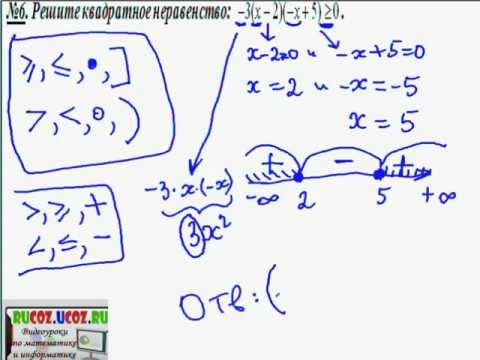 №6. Решите квадратное неравенство: -3(x-2)(-x+5)≥0.
≥, ≤, •, ]
>, <, ∘, )
x-2=0 и -x+5=0
x=2 и -x=-5
x=5
-3·x·(-x)
3x²
+ - +
-∞ 2 5 +∞
>, ≥, +
<, ≤, -
Отв:(
RUCOZ.UCOZ.RU
Видеоуроки
по математике
и информатике